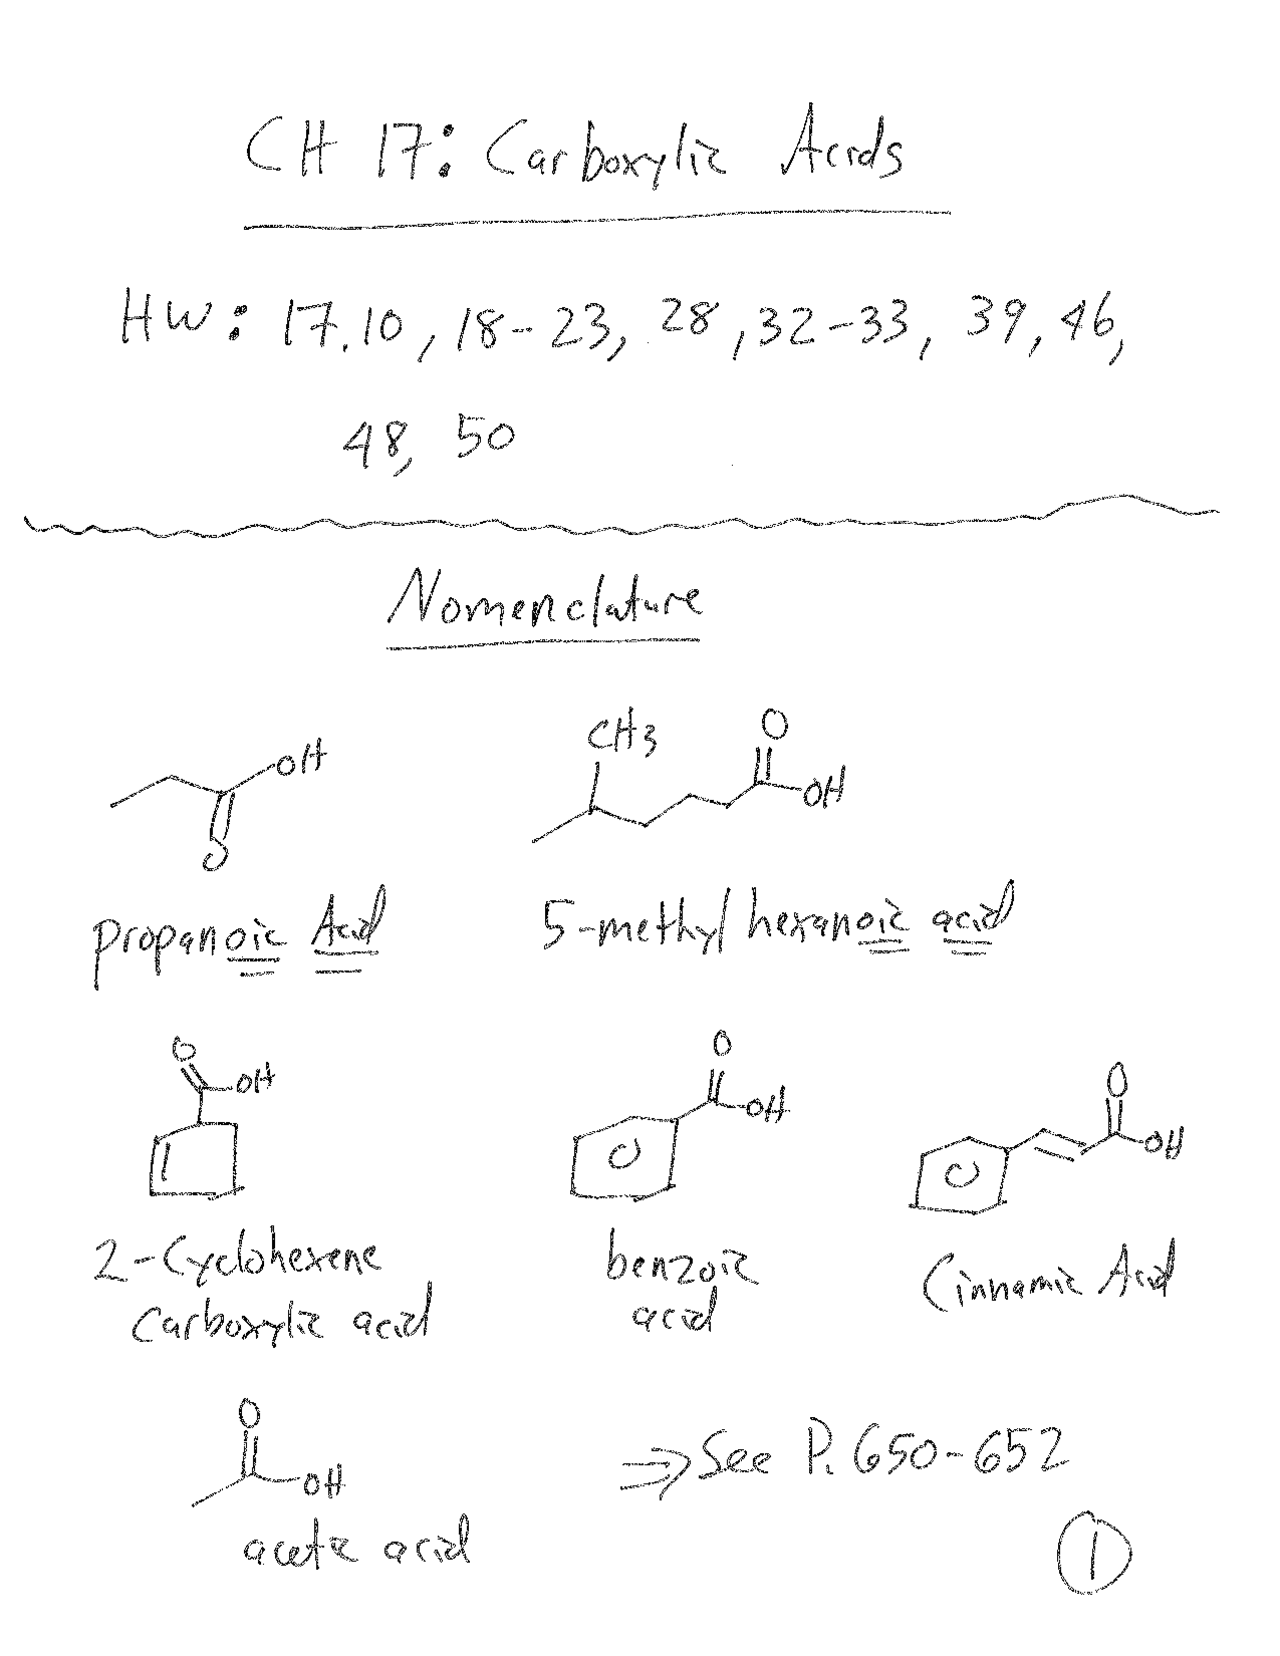 CH 17: Carboxylic Acids
HW: 17.10, 18-23, 28, 32-33, 39, 46,
48, 50
Nomenclature
OH
O
CH3
O
OH
propanoic Acid
5-methyl hexanoic acid
O
OH
O
OH
O
OH
2-Cyclohexene
Carboxylic acid
benzoic
acid
Cinnamic Acid
O
OH
acetic acid
⇒ See P. 650-652
1